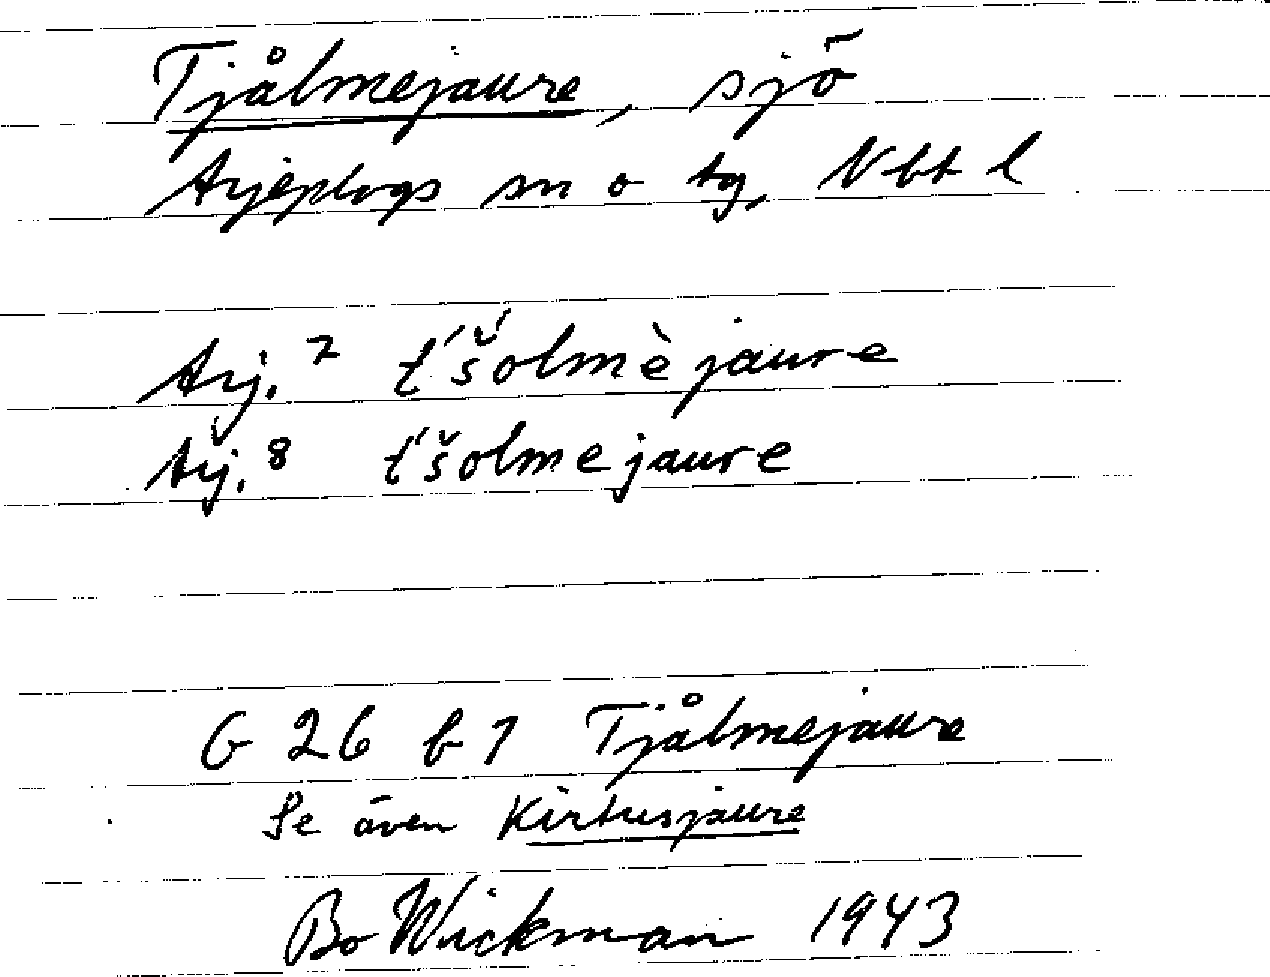 Tjålmejaure, sjö
Arjeplogs sn o tg, Nbt l
Arj.² t́š́olmèjaure
Arj.⁸ t́š́olmejaure
G 26 b 1 Tjålmejaure
Se även Kirtusjaure
Bo Wickman 1943